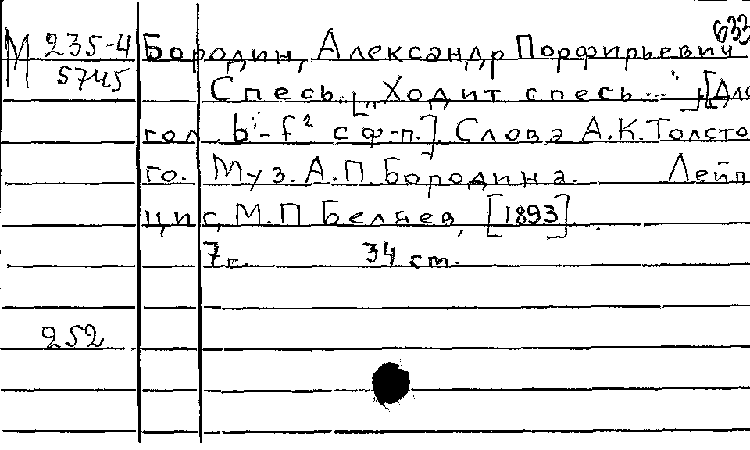 633
М 235-4 Бородин, Александр Порфирьевич
5745 Спесь. [„Ходит спесь..."] [Для
гол. b-f² с ф-п.] Слова А.К.Толсто
го. Муз. А.П.Бородина. Лейп
циг, М.П Беляев, [1893].
7с. 34 cm.
252